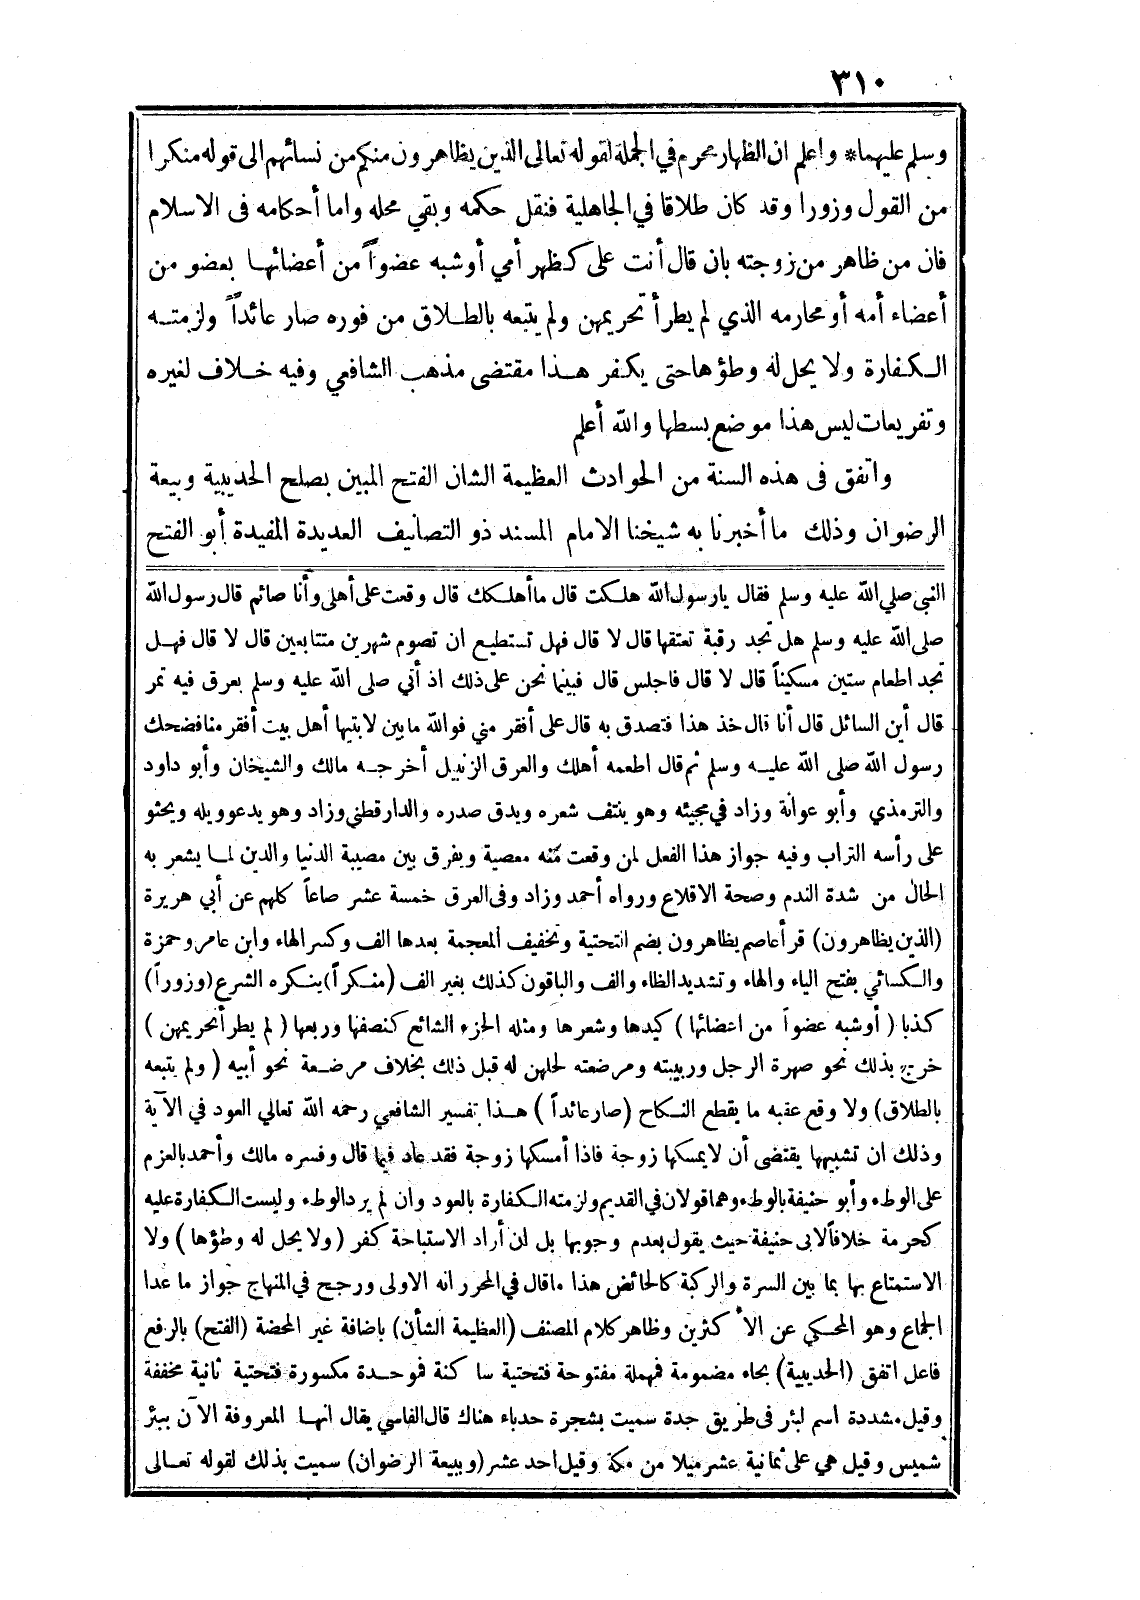 ٣١٠
وسلم عليهما* واعلم ان الظهار محرم في الجملة لقوله تعالى الذين يظاهرون منكم من نسائهم الى قوله منكرا
من القول وزورا وقد كان طلاقا في الجاهلية فنقل حكمه وبقي محله واما أحكامه فى الاسلام
فان من ظاهر من زوجته بان قال أنت على كظهر أمي أو شبه عضواً من أعضائها بعضو من
أعضاء أمه أو محارمه الذي لم يطرأ تحريمهن ولم يتبعه بالطلاق من فوره صار عائداً ولزمته
الكفارة ولا يحل له وطؤها حتى يكفر هذا مقتضى مذهب الشافعي وفيه خلاف لغيره
وتفريعات ليس هذا موضع بسطها والله أعلم
واتفق فى هذه السنة من الحوادث العظيمة الشان الفتح المبين بصلح الحديبية وبيعة
الرضوان وذلك ما أخبرنا به شيخنا الامام المسند ذو التصانيف العديدة المفيدة أبو الفتح
النبي صلي الله عليه وسلم فقال يارسول الله هلكت قال ما أهلكك قال وقعت على أهلى وأنا صائم قال رسول الله
صلى الله عليه وسلم هل تجد رقبة تعتقها قال لا قال فهل تستطيع ان تصوم شهرين متتابعين قال لا قال فهل
تجد اطعام ستين مسكيناً قال لا قال فاجلس قال فبينما نحن على ذلك اذ أتي صلى الله عليه وسلم بعرق فيه تمر
قال أين السائل قال أنا قال خذ هذا فتصدق به قال على أفقر مني فوالله مابين لابتيها أهل بيت أفقر منا فضحك
رسول الله صلى الله عليه وسلم ثم قال اطعمه أهلك والعرق الزنبيل أخرجه مالك والشيخان وأبو داود
والترمذي وأبو عوانة وزاد في مجيئه وهو ينتف شعره ويدق صدره والدارقطني وزاد وهو يدعو ويله ويحثو
على رأسه التراب وفيه جواز هذا الفعل لمن وقعت منه معصية ويفرق بين مصيبة الدنيا والدين لما يشعر به
الحال من شدة الندم وصحة الاقلاع ورواه أحمد وزاد وفى العرق خمسة عشر صاعاً كلهم عن أبي هريرة
(الذين يظاهرون) قرأ عاصم يظاهرون بضم التحتية وتخفيف المعجمة بعدها الف وكسر الهاء وابن عامر وحمزة
والكسائي بفتح الياء والهاء وتشديد الظاء والف والباقون كذلك بغير الف (منكراً) ينكره الشرع (وزوراً)
كذبا ( أو شبه عضواً من اعضائها ) كيدها وشعرها ومثله الجزء الشائع كنصفها وربعها ( لم يطرأ تحريمهن )
خرج بذلك نحو صهرة الرجل وربيبته ومرضعته لحلهن له قبل ذلك بخلاف مرضعة نحو أبيه ( ولم يتبعه
بالطلاق) ولا وقع عقبه ما يقطع النكاح (صار عائداً ) هذا تفسير الشافعي رحمه الله تعالي العود في الآية
وذلك ان تشبيهها يقتضى أن لايمسكها زوجة فاذا أمسكها زوجة فقد عاد فيما قال وفسره مالك وأحمد بالعزم
على الوطء وأبو حنيفة بالوطء وهما قولان في القديم ولزمته الكفارة بالعود وان لم يرد الوطء وليست الكفارة عليه
كحرمة خلافاً لابى حنيفة حيث يقول بعدم وجوبها بل ان أراد الاستباحة كفر ( ولا يحل له وطؤها ) ولا
الاستمتاع بها بما بين السرة والركبة كالحائض هذا ماقال في المحرر انه الاولى ورجح في المنهاج جواز ما عدا
الجماع وهو المحكي عن الأكثرين وظاهر كلام المصنف (العظيمة الشأن) باضافة غير المحضة (الفتح) بالرفع
فاعل اتفق (الحديبية) بحاء مضمومة فمهملة مفتوحة فتحتية ساكنة فموحدة مكسورة فتحتية ثانية مخففة
وقيل مشددة اسم لبئر فى طريق جدة سميت بشجرة حدباء هناك قال الفاسي يقال انها المعروفة الآن ببئر
شميس وقيل هي على ثمانية عشر ميلا من مكة وقيل احد عشر (وبيعة الرضوان) سميت بذلك لقوله تعالى